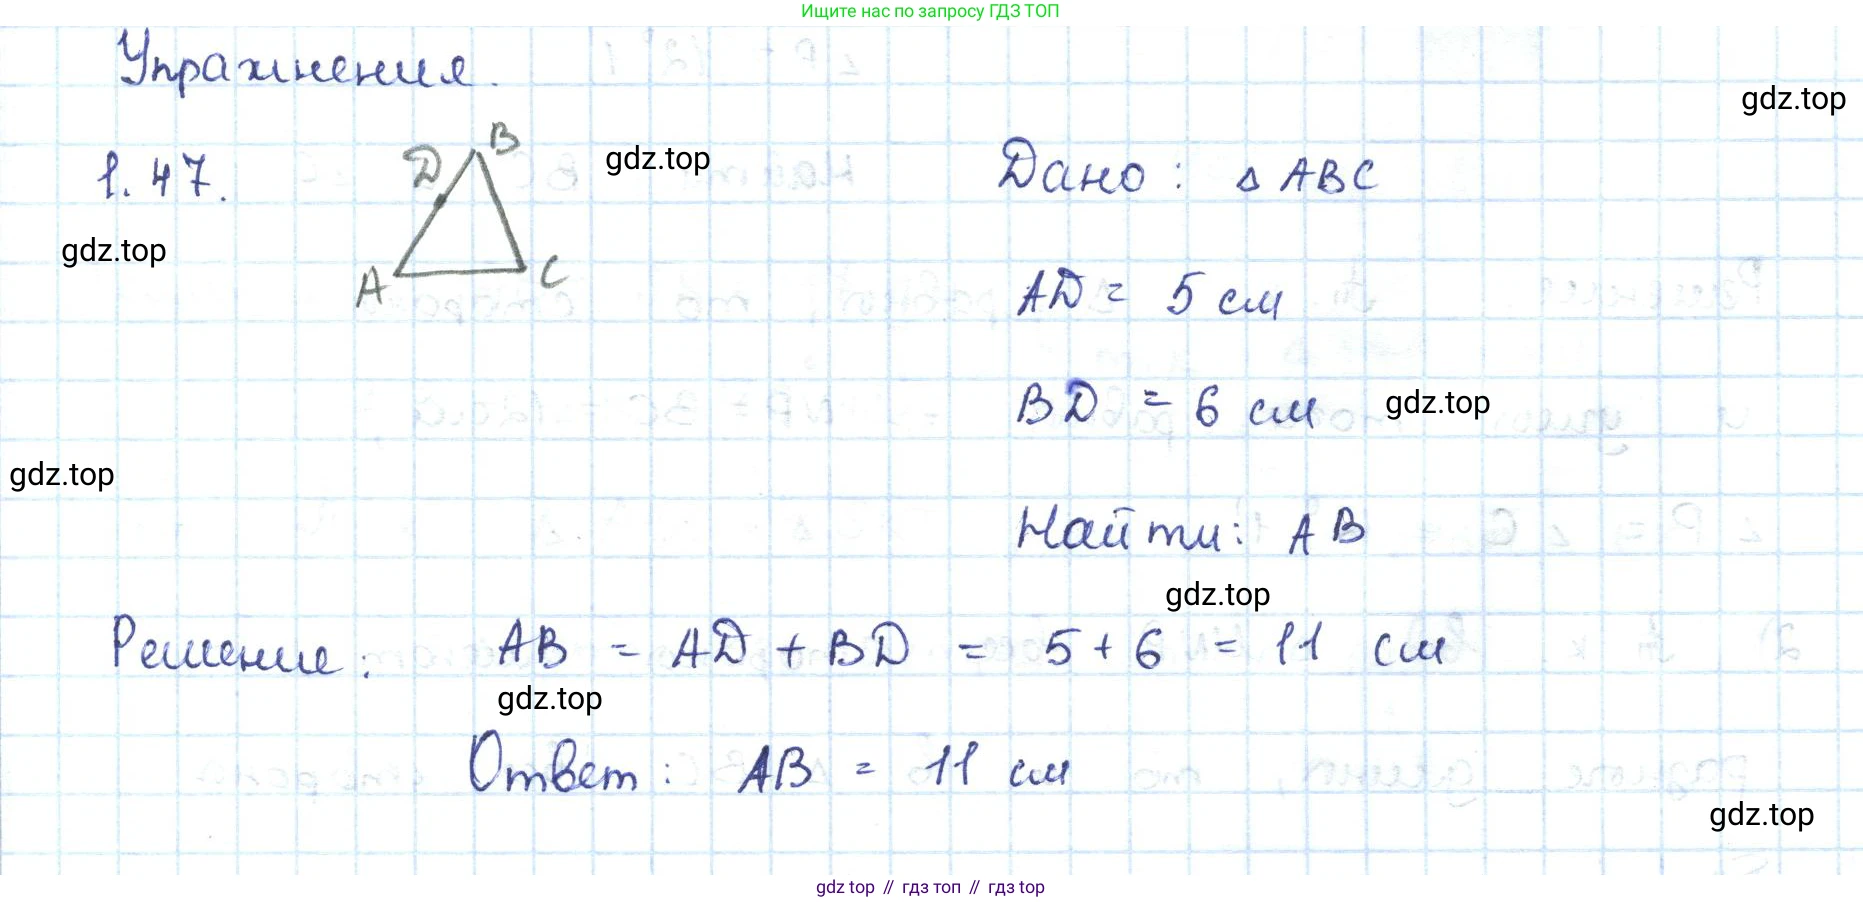 Ищите нас по запросу ГДЗ ТОП
Упражнения.
gdz.top
1.47.
D B
gdz.top
Дано: △ ABC
gdz.top
A C
AD = 5 см
BD = 6 см
gdz.top
gdz.top
Найти: AB
gdz.top
Решение: AB = AD + BD = 5 + 6 = 11 см
gdz.top
Ответ: AB = 11 см
gdz.top
gdz top // гдз топ // гдз top